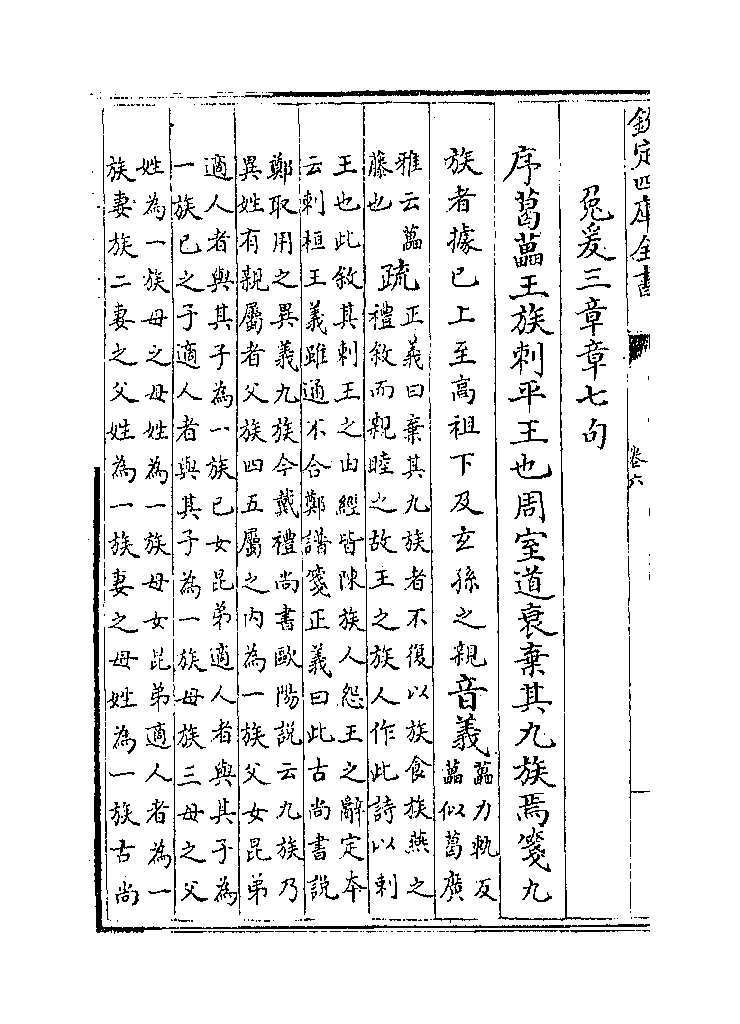 欽定四庫全書 卷六
兔爰三章章七句
序葛藟王族刺平王也周室道衰棄其九族焉箋九
族者據已上至高祖下及玄孫之親音義
藟力軌反
藟似葛廣
雅云藟
藤也
疏
正義曰棄其九族者不復以族食族燕之
禮敘而親睦之故王之族人作此詩以刺
王也此敘其刺王之由經皆陳族人怨王之辭定本
云刺桓王義雖通不合鄭譜箋正義曰此古尚書説
鄭取用之異義九族今戴禮尚書歐陽説云九族乃
異姓有親屬者父族四五屬之内為一族父女昆弟
適人者與其子為一族已女昆弟適人者與其子為
一族已之子適人者與其子為一族母族三母之父
姓為一族母之母姓為一族母女昆弟適人者為一
族妻族二妻之父姓為一族妻之母姓為一族古尚